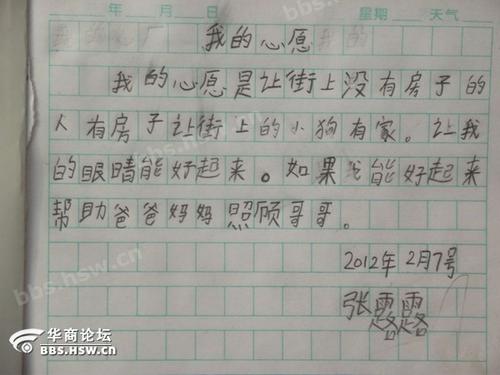 年 月 日 星期 天气
我的心愿
我的心愿是让街上没有房子的
人有房子让街上的小狗有家。让我
的眼睛能好起来。如果我能好起来
帮助爸爸妈妈照顾哥哥。
2012年2月7号
张露露
华商论坛
BBS.HSW.CN
bbs.hsw.cn